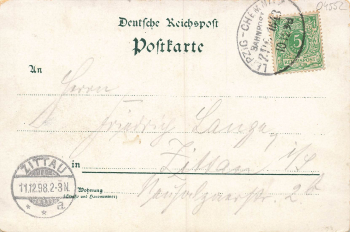 04552
Deutsche Reichspost
Postkarte
LEIPZIG-CHEMNITZ
BAHNPOST
5
An
Herrn
Friedrich Lange
in Zittau i/S
Wohnung
(Straße und Hausnummer)
ZITTAU
11.12.98. 2-3N.
* a